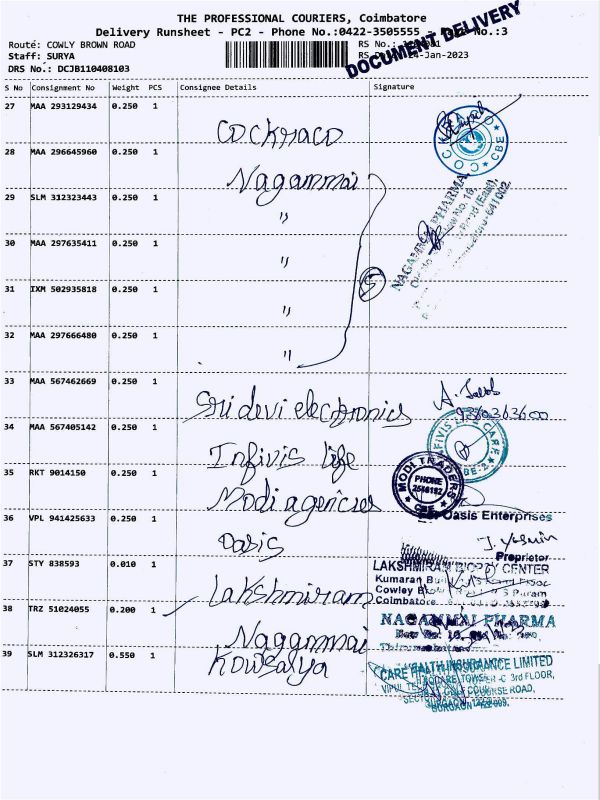 THE PROFESSIONAL COURIERS, Coimbatore
Delivery Runsheet - PC2 - Phone No.:0422-3505555 No.:3
DOCUMENT DELIVERY
Route: COWLY BROWN ROAD
RS No.:
Staff: SURYA
24-Jan-2023
DRS No.: DCJB110408103
S No Consignment No Weight PCS Consignee Details Signature
27 MAA 293129434 0.250 1
Cockraco
COCO CBE
28 MAA 296645960 0.250 1
Nagammai
NAGAMMAI PHARMA
641 002.
29 SLM 312323443 0.250 1
"
30 MAA 297635411 0.250 1
"
31 IXM 502935818 0.250 1
"
5
32 MAA 297666480 0.250 1
"
33 MAA 567462669 0.250 1
Sri devi electronics
34 MAA 567405142 0.250 1
Infivis life
INFIVIS LIFE CARE
CBE-2
35 RKT 9014150 0.250 1
Modi agencies
MODI TRADERS
PHONE
CBE
36 VPL 941425633 0.250 1
Oasis
For Oasis Enterprises
Proprietor
37 STY 838593 0.010 1
Lakshmiram
LAKSHMIRAM BIOPSY CENTER
Kumaran
Cowley
Coimbatore
38 TRZ 51024055 0.200 1
Nagammai
NAGAMMAI PHARMA
39 SLM 312326317 0.550 1
Kowsalya
CARE HEALTH INSURANCE LIMITED
3rd FLOOR,
VIPUL
GOLF COURSE ROAD,
GURGAON